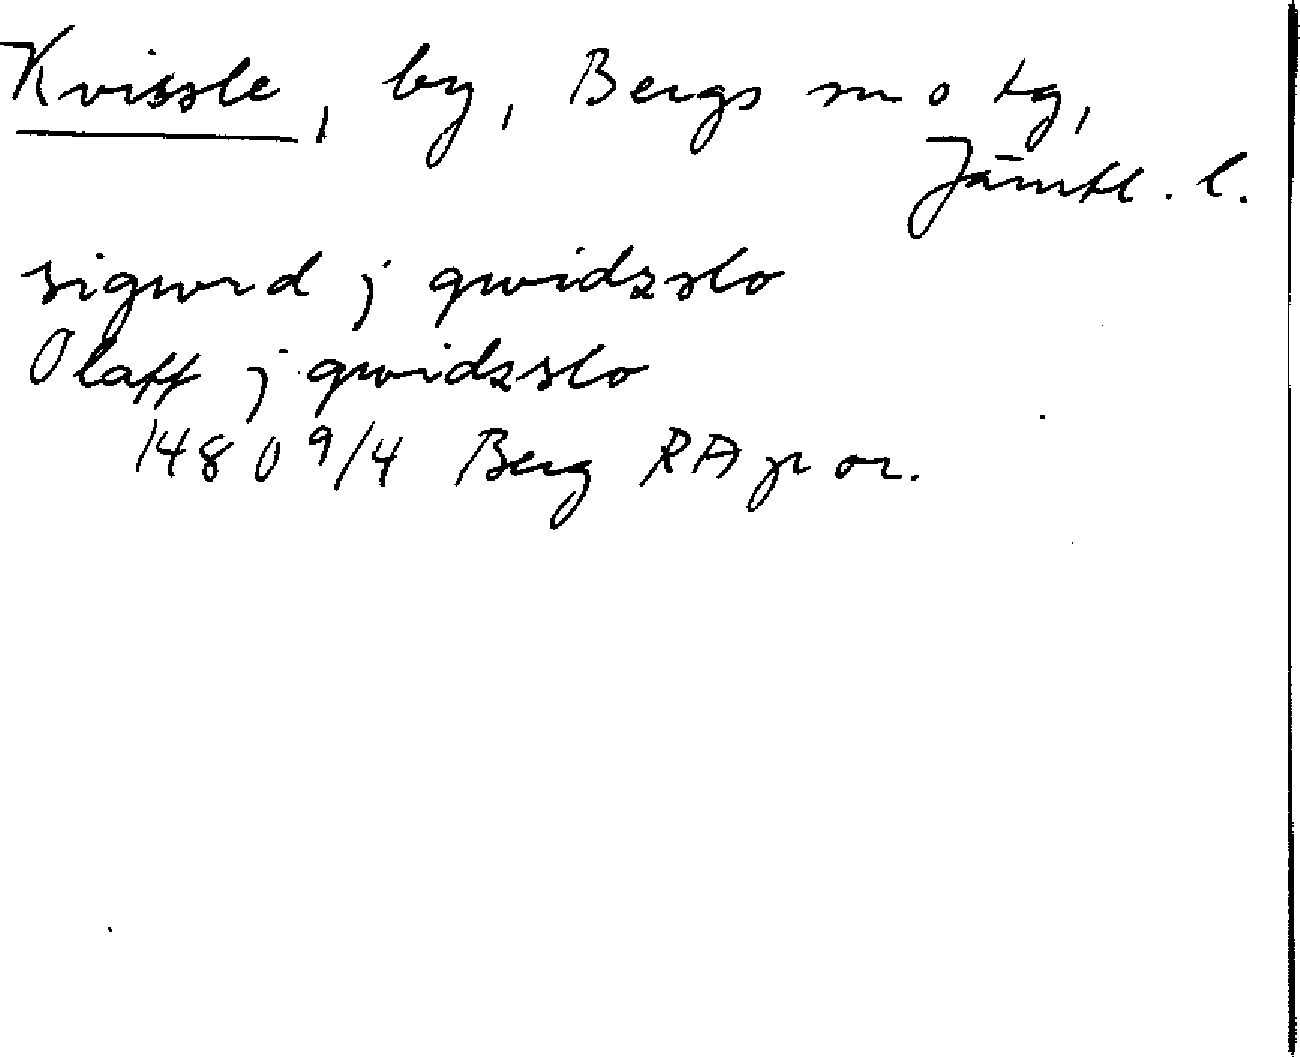 Kvissle, by, Bergs sn o tg,
Jämtl. l.
sigwrd j qwidzslo
Olaff j qwidzslo
1480 9/4 Berg RAp or.